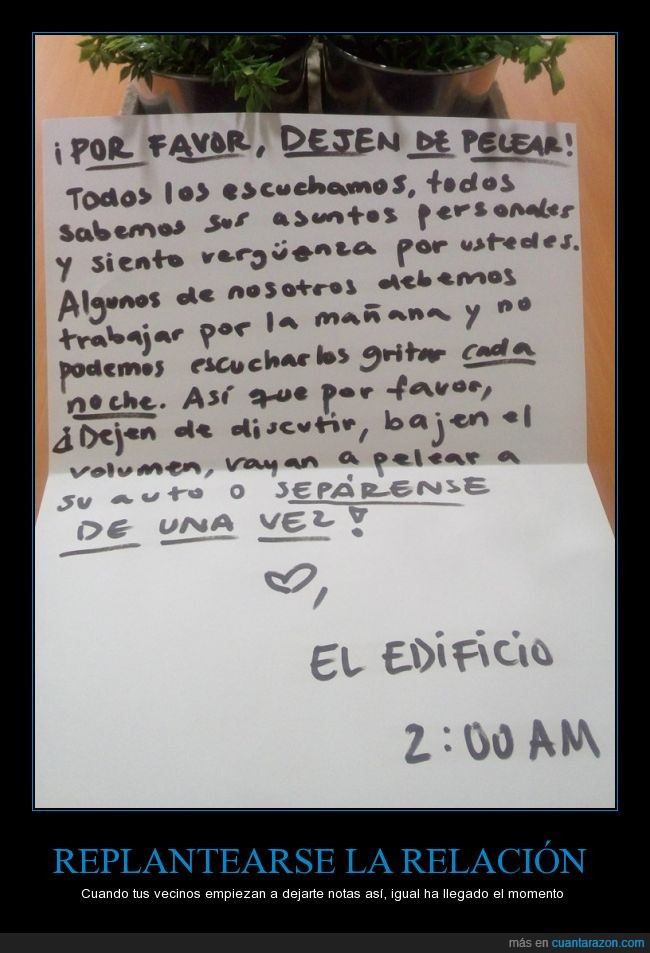 ¡POR FAVOR, DEJEN DE PELEAR!
Todos los escuchamos, todos
sabemos sus asuntos personales
y siento vergüenza por ustedes.
Algunos de nosotros debemos
trabajar por la mañana y no
podemos escucharlos gritar cada
noche. Así que por favor,
¡Dejen de discutir, bajen el
volumen, vayan a pelear a
su auto o SEPÁRENSE
DE UNA VEZ!
♡,
EL EDIFICIO
2:00 AM
REPLANTEARSE LA RELACIÓN
Cuando tus vecinos empiezan a dejarte notas así, igual ha llegado el momento
más en cuantarazon.com